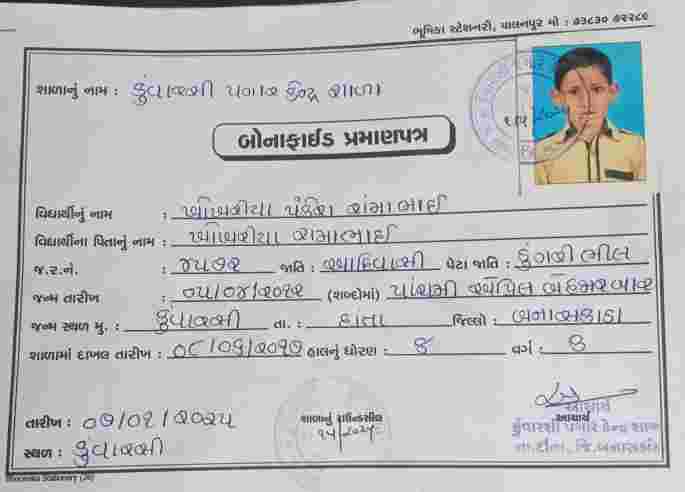 ભૂમિકા સ્ટેશનરી, પાલનપુર મો : ૭૩૮૩૦ ૭૨૨૮૯
શાળાનું નામ : કુંવારસી પગાર કેન્દ્ર શાળા
બોનાફાઈડ પ્રમાણપત્ર
વિદ્યાર્થીનું નામ : ખોખરીયા પંકેશ રામાભાઈ
વિદ્યાર્થીના પિતાનું નામ : ખોખરીયા રામાભાઈ
જ.ર.નં. : જાતિ : આદિવાસી પેટા જાતિ : ડુંગરી ભીલ
જન્મ તારીખ : ૦૫/૦૪/૨૦૧૨ (શબ્દોમાં) પાંચમી એપ્રિલ બેહજાર બાર
જન્મ સ્થળ મુ. : કુંવારસી તા. : દાંતા જિલ્લો : બનાસકાંઠા
શાળામાં દાખલ તારીખ : હાલનું ધોરણ : ૮ વર્ગ : ૭
તારીખ : ૦૭/૦૧/૨૦૨૫
સ્થળ : કુંવારસી
શાળાનું રાઉન્ડસીલ
આચાર્ય
આચાર્ય
કુંવારશી પગાર કેન્દ્ર શાળા
તા.દાંતા, જિ.બનાસકાંઠા
Bhoomika Stationery